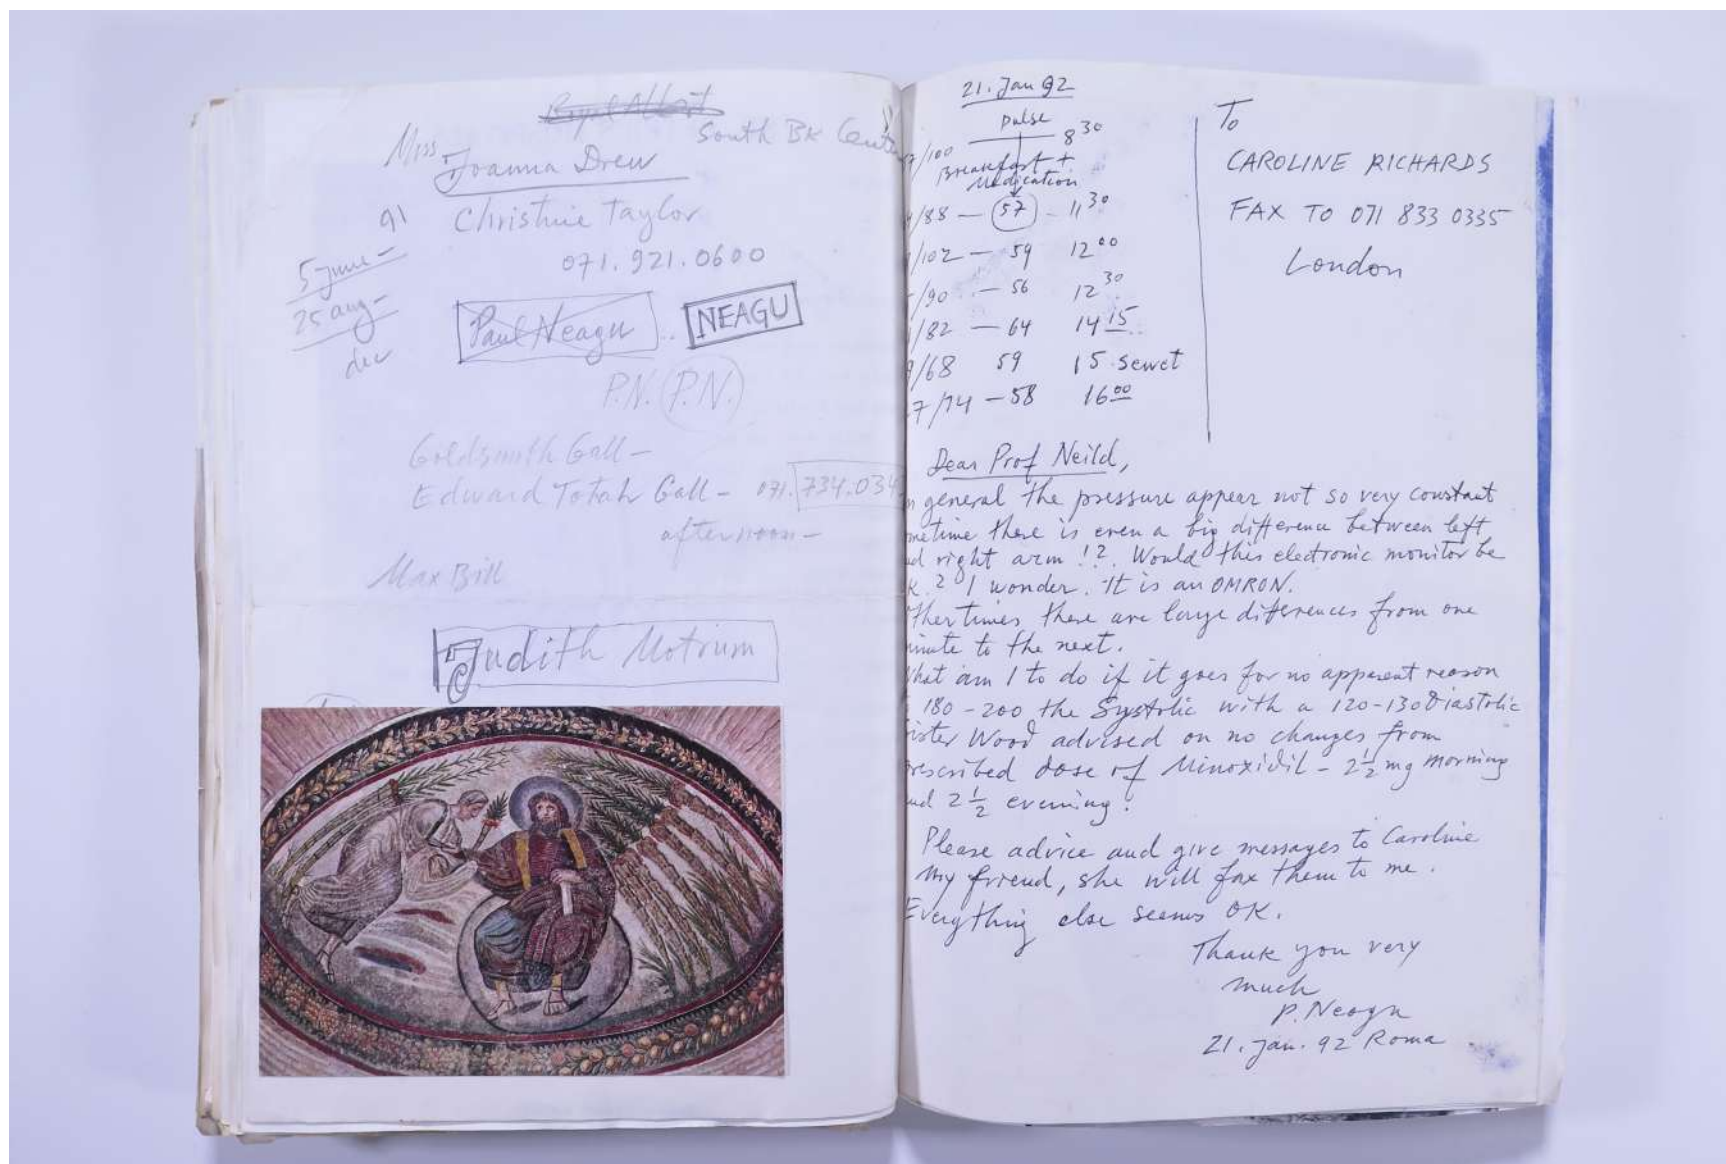 Royal Albert
South Bk Cent
Miss Joanna Drew
91 Christine Taylor
071.921.0600
5 june –
25 aug –
dec
Paul Neagu .. NEAGU
P.N. (P.N.)
Goldsmith Gall –
Edward Totah Gall – 071.734.034
afternoon –
Max Bill
Judith
21. Jan 92
pulse
/100 8 30
Breakfast +
Medication
/88 — 57 - 11 30
/102 — 59 12 00
/90 — 56 12 30
/82 — 64 14 15
/68 59 15
7/74 — 58 16 00
To
CAROLINE RICHARDS
FAX TO 071 833 0335
London
Dear Prof Neild,
n general the pressure appear not so very constant
metime there is even a big difference between left
d right arm !?. Would this electronic monitor be
k. ? I wonder. It is an OMRON.
ther times there are large differences from one
inute to the next.
hat am I to do if it goes for no apparent reason
180 – 200 the Systolic with a 120-130 Diastolic
ister Wood advised on no changes from
rescribed dose of Minoxidil – 2 1/2 mg morning
nd 2 1/2 evening.
Please advice and give messages to Caroline
my friend, she will fax them to me.
Everything else seems OK.
Thank you very
much
P. Neagu
21. Jan. 92 Roma